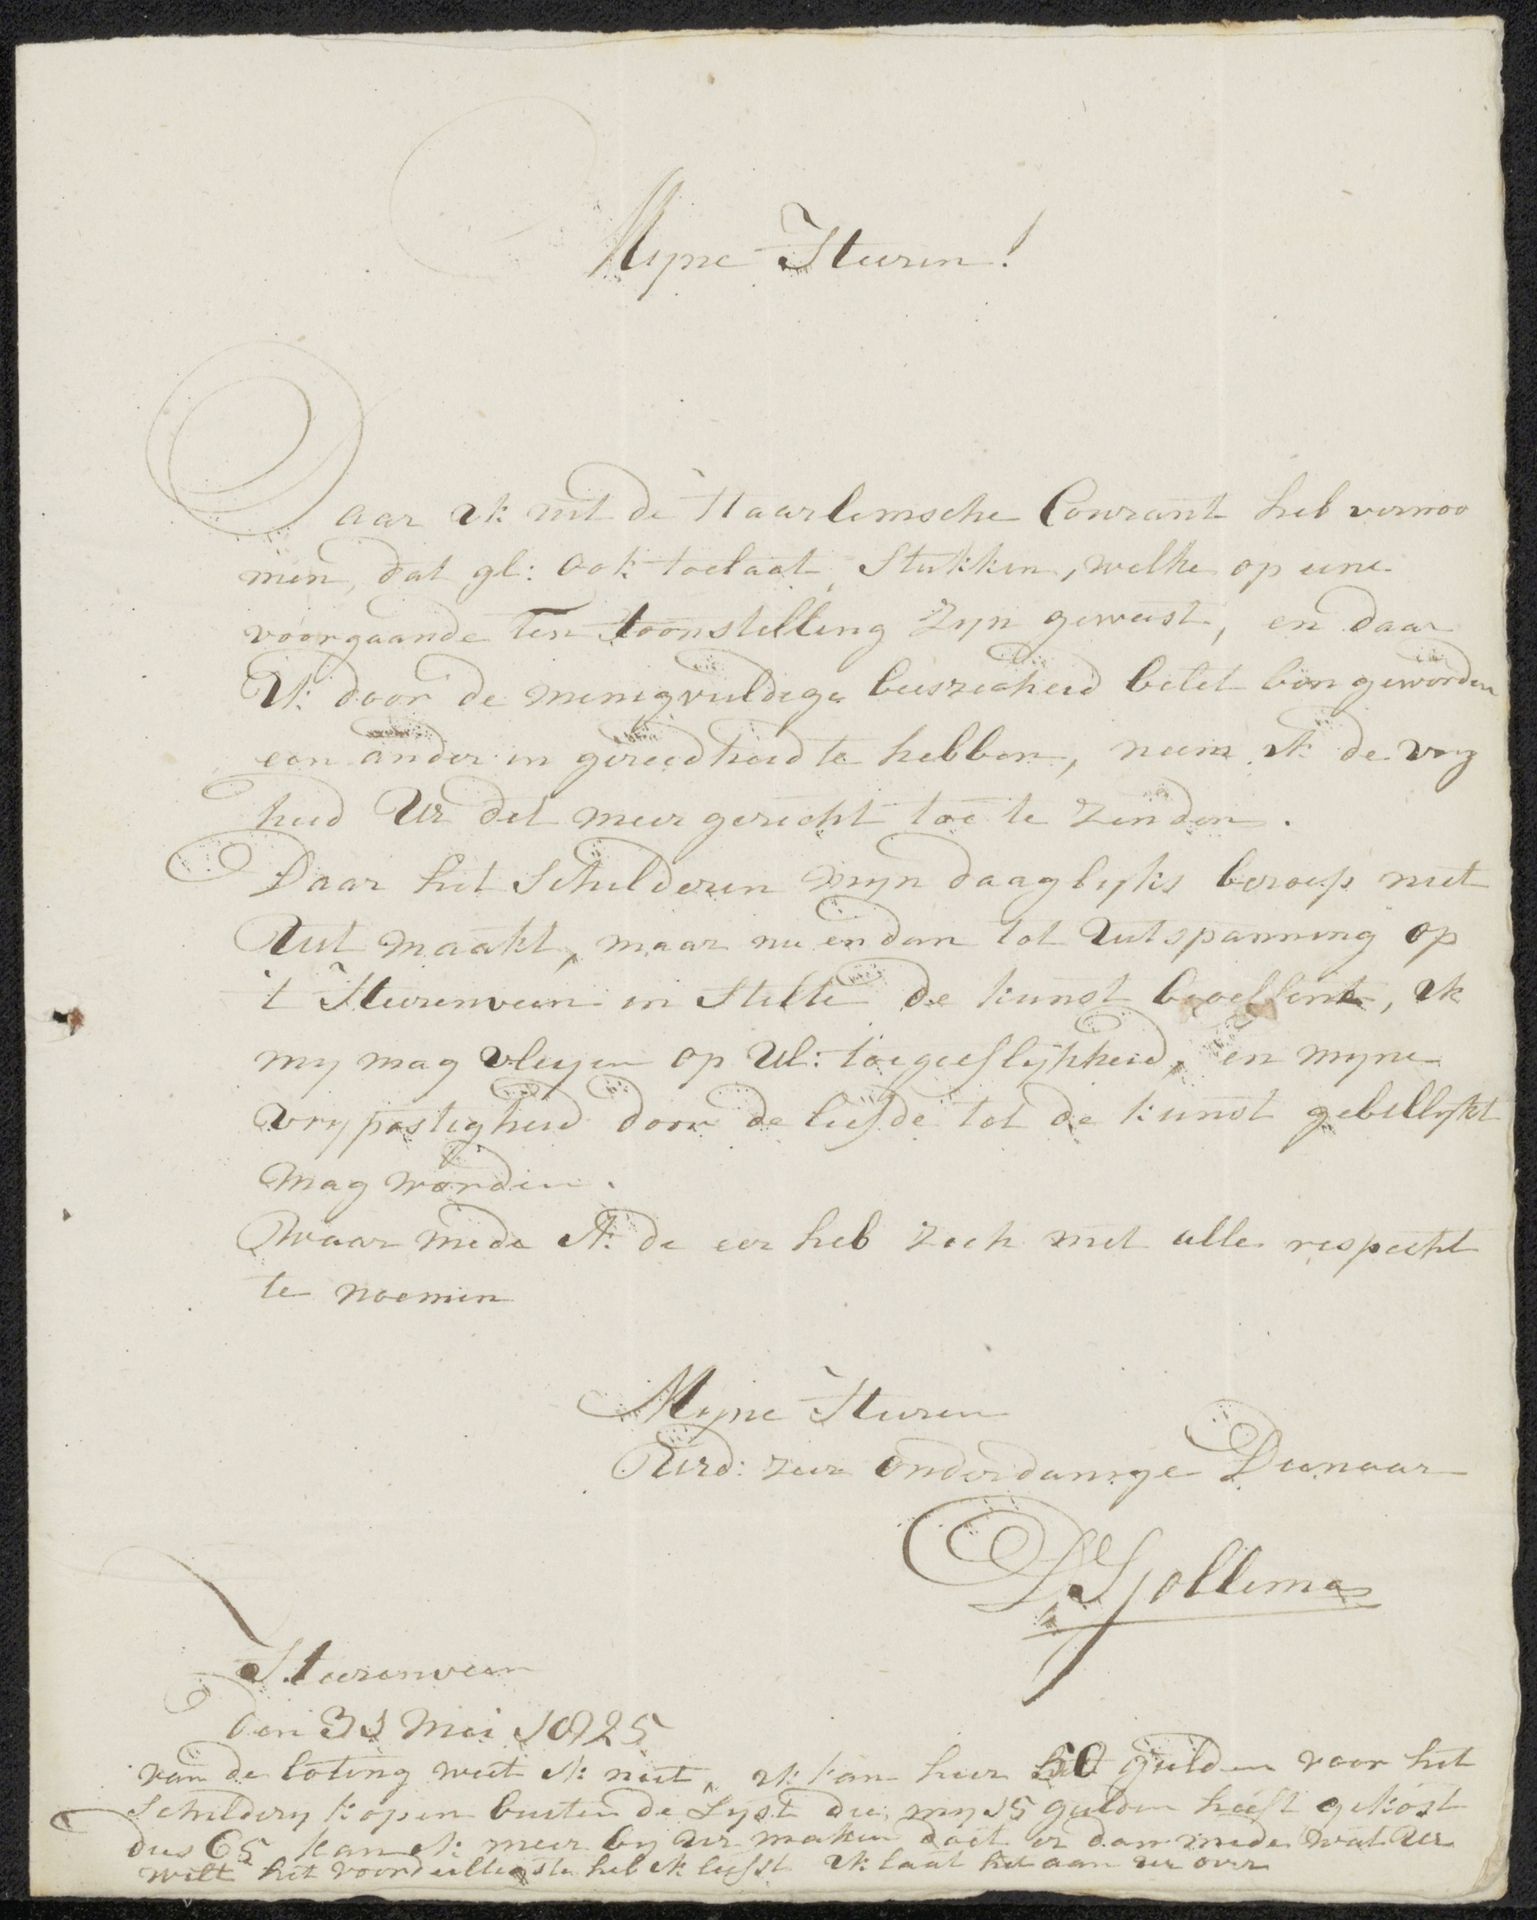 Myne Heeren!
Daar ik uit de Haarlemsche Courant heb vernoo
men, dat gl: ook toelaat, Stukken, welke op eene
voorgaande Ten toonstelling zyn geweest, en daar
Ik door de menigvuldige beezigheid belet ben geworden
een ander in gereedheid te hebben, neem ik de vry
heid Ue dit meer gericht toe te zenden.
Daar het Schilderen myn daaglyks beroep niet
Uit maakt, maar nu en dan tot Uitspanning op
't Heerenveen in Stilte de kunst beoeffent, ik
my mag vleijen op Ul: toegeeflykheid, en myne
vrypostigheid door de liefde tot de kunst gebillykt
mag worden.
Waar mede Ik de eer heb zich met alle respeckt
te noemen
Myne Heeren
Uwd: zeer onderdanige Dienaar
Sjollema
Heerenveen
den 31 Mei 1825
van de loting weet ik niet, ik kan hier 50 gulden voor het
Schildery kopen buiten de Lyst die my 15 gulden heeft gekost
dus 65 kan ik meer by Ue maken doet er dan mede wat Ue
wilt het voordeeligste heb ik liefst ik laat het aan ue over